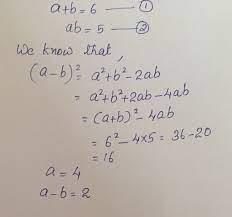 a+b=6 —— ①
ab=5 —— ②
We know that,
(a-b)²= a²+b²-2ab
= a²+b²+2ab-4ab
= (a+b)²-4ab
= 6²-4×5= 36-20
= 16
a=4
a-b=2